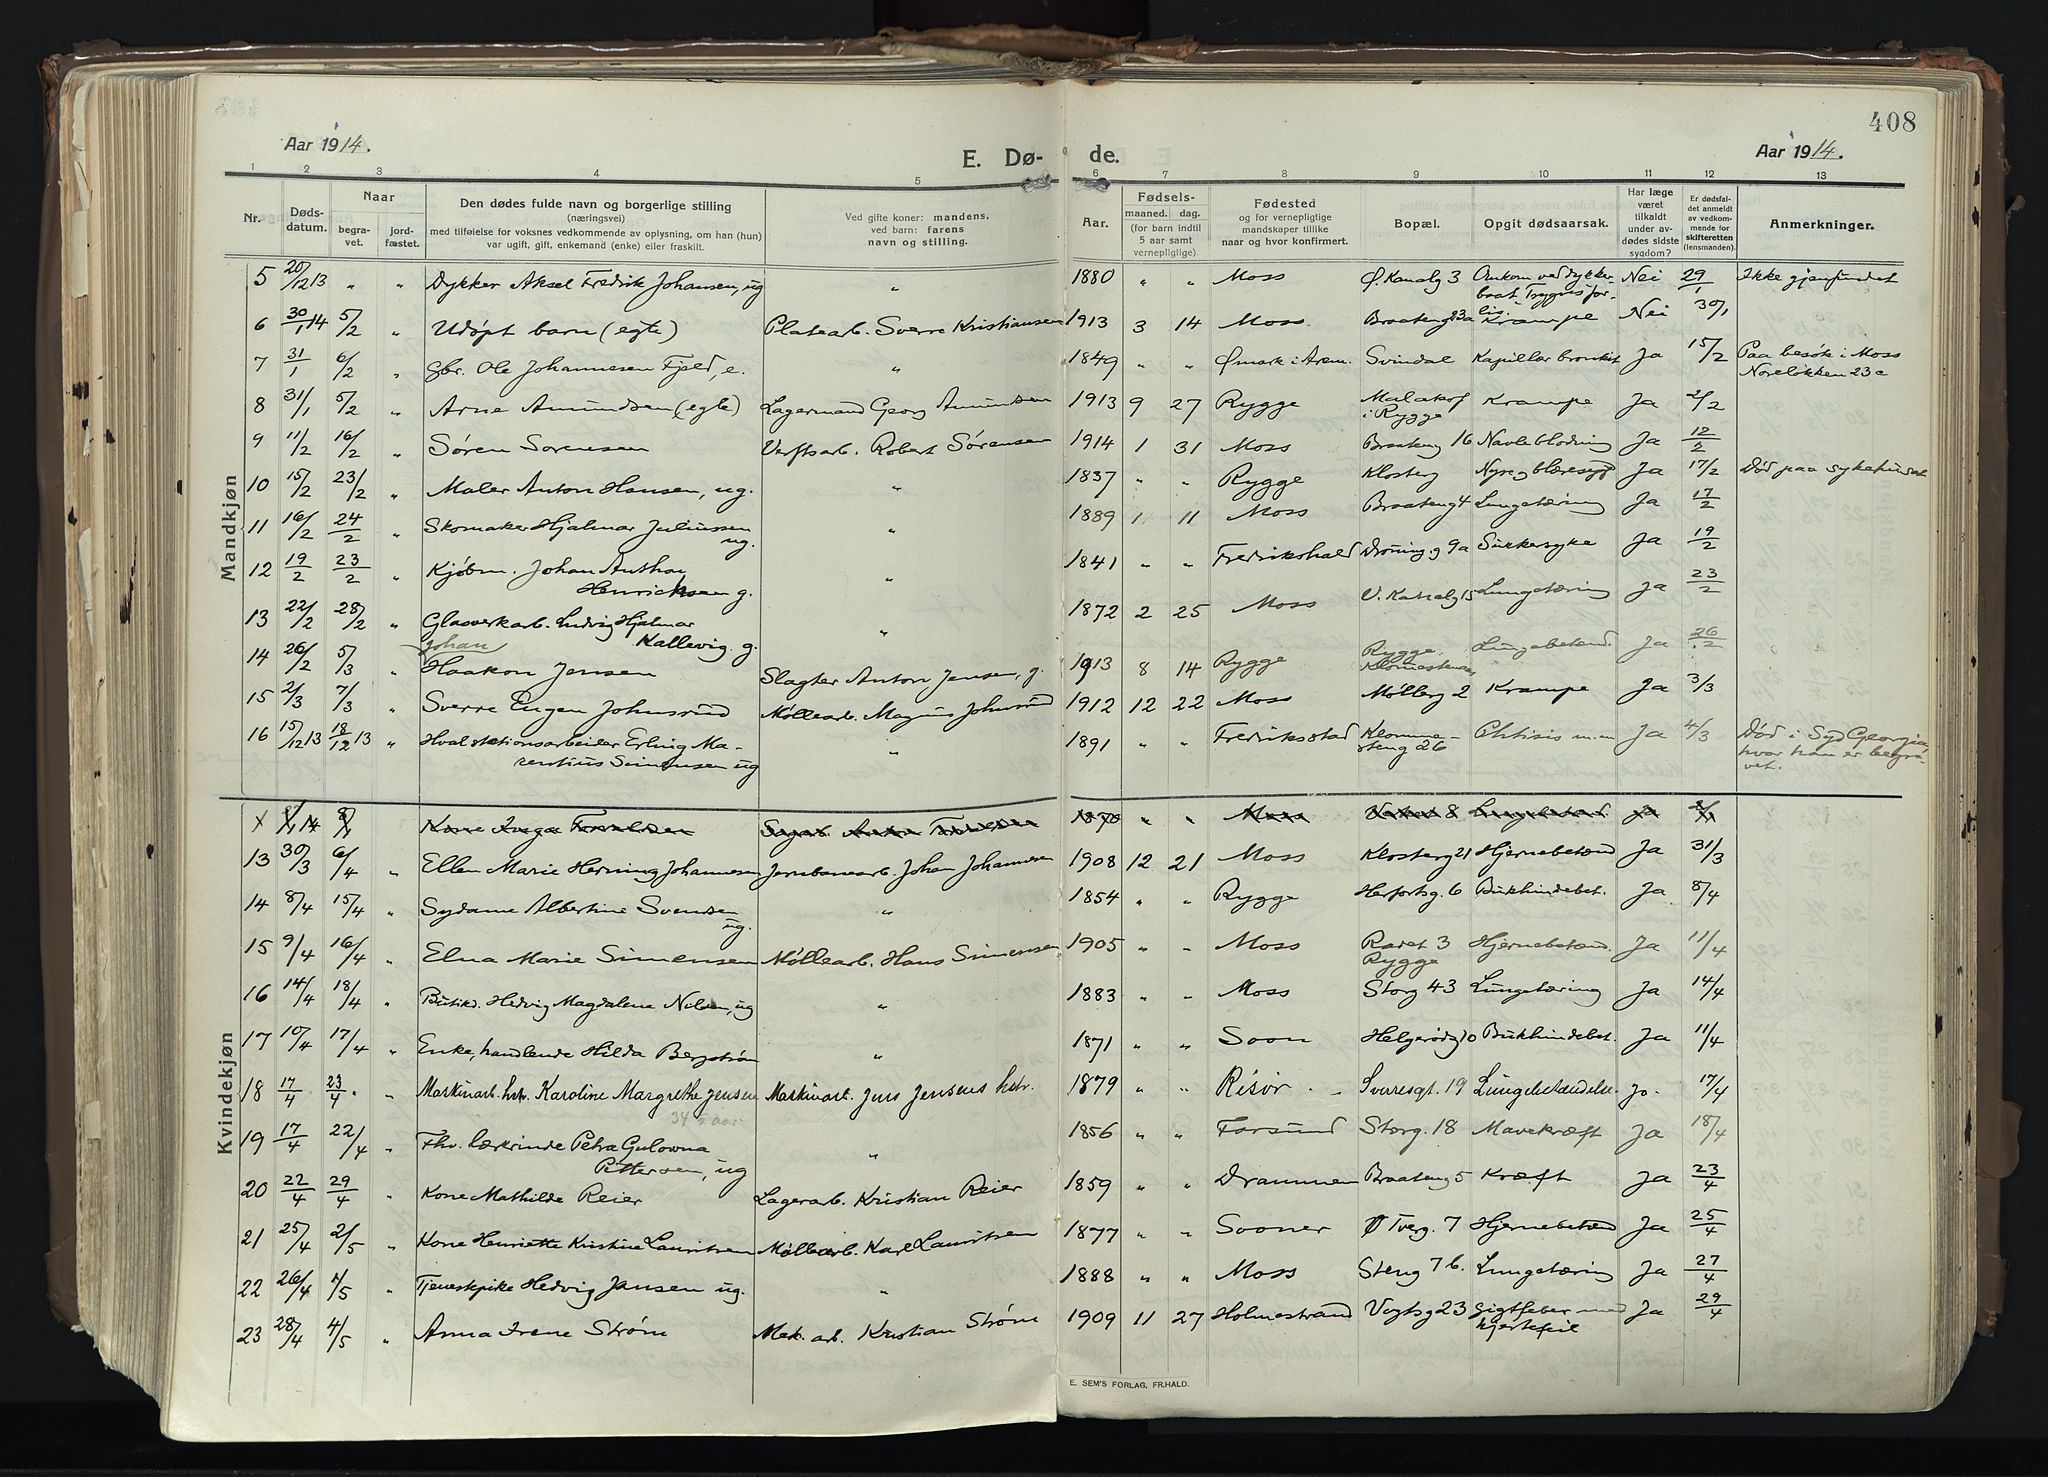 408
Aar 1914.
E. Dø-
de.
Aar 1914.
1 2 3 4 5 6 7 8 9 10 11 12 13
Nr.
Døds-
datum.
Naar
begra-
vet.
jord-
fæstet.
Den dødes fulde navn og borgerlige stilling
(næringsvei)
med tilføielse for voksnes vedkommende av oplysning, om han (hun)
var ugift, gift, enkemand (enke) eller fraskilt.
Ved gifte koner: mandens,
ved barn: farens
navn og stilling.
Aar.
Fødsels-
maaned. dag.
(for barn indtil
5 aar samt
vernepligtige)
Fødested
og for vernepligtige
mandskaper tillike
naar og hvor konfirmert.
Bopæl.
Opgit dødsaarsak.
Har læge
været
tilkaldt
under av-
dødes sidste
sygdom?
Er dødsfal-
det anmeldt
av vedkom-
mende for
skifteretten
(lensmanden).
Anmerkninger.
Mandkjøn
5 20/12 13 " " Dykker Aksel Fredrik Johansen, ug " 1880 " " Moss Ø. Kanalg 3 Omkom ved dykker- Nei 29/1 Ikke gjenfundet
baat Trygves for-
lis.
6 30/1 14 5/2 " Udøpt barn (egte) Platearb. Sverre Kristiansen 1913 3 14 Moss Braateng 23a Krampe Nei 30/1
7 31/1 6/2 " Gbr. Ole Johannesen Fjeld, e. " 1849 " " Ømark i Arem. Svindal Kapillær bronkit Ja 15/2 Paa besøk i Moss
Noreløkken 23c
8 31/1 5/2 " Arne Amundsen (egte) Lagermand Georg Amundsen 1913 9 27 Rygge Malakof Krampe Ja 2/2
i Rygge
9 11/2 16/2 " Søren Sørensen Verftsarb. Robert Sørensen 1914 1 31 Moss Braateng 16 Navleblødning Ja 12/2
10 15/2 23/2 " Maler Anton Hansen, ug. " 1837 " " Rygge Klosterg Nyre og blæresyd Ja 17/2 Død paa sykehuset
11 16/2 24/2 " Skomaker Hjalmar Juliussen " 1889 1 11 Moss Braateng 4 Lungetæring Ja 17/2
ug.
12 19/2 23/2 " Kjøbm. Johan Anthon " 1841 " " Fredrikshald Dronning. g 9a Sukkersyke Ja 19/2
Henricksen g.
13 22/2 28/2 " Glasverkarb. Ludvig Hjalmar " 1872 2 25 Moss V. Kanalg 15 Lungetæring Ja 23/2
Kallevig. g.
Johan
14 26/2 5/3 " Haakon Jensen Slagter Anton Jensen, g. 1913 8 14 Rygge Rygge Lungebetænd. Ja 26/2
15 2/3 7/3 " Sverre Eugen Johnsrud Møllearb. Magnus Johnsrud 1912 12 22 Moss Møllerg 2 Krampe Ja 3/3
16 15/12 13 18/12 13 " Hvalstationsarbeider Erling Ma- " 1891 " " Fredriksstad Klomme- Phtisis m.m Ja 4/3 Død i Syd Georgia,
rentius Simensen ug steng 26 hvor han er begra-
vet.
Kvindekjøn
14 1870 " " Moss 8 Ja
13 30/3 6/4 " Ellen Marie Herning Johannesen Jernbanearb. Johan Johannesen 1908 12 21 Moss Klosterg 21 Hjernebetænd Ja 31/3
14 8/4 15/4 " Sydame Albertine Svendsen " 1854 " " Rygge Herfortsg. 6 Bukhindebet. Ja 8/4
ug.
15 9/4 16/4 " Elna Marie Simensen Møllearb. Hans Simensen 1905 " " Moss Raret 3 Hjernebetænd. Ja 11/4
Rygge
16 14/4 18/4 " Butikd. Hedvig Magdalene Nilsen, ug " 1883 " " Moss Storg 43 Lungetæring Ja 14/4
17 10/4 17/4 " Enke, handlende Hilda Bergstrøm " 1871 " " Soon Helgerødg 10 Bukhindebet. Ja 11/4
18 17/4 23/4 " Maskinarb. hstr. Karoline Margrethe Jensen Maskinarb. Jens Jensens hstr. 1879 " " Risør Sverresgt. 19 Lungebetændelse. Ja. 17/4
34 1/2 aar
19 17/4 22/4 " Fhv. lærerinde Petra Gulovna " 1856 " " Farsund Storg. 18 Mavekræft Ja 18/4
Pettersen, ug
20 22/4 29/4 " Kone Mathilde Reier Lagerarb. Kristian Reier 1859 " " Drammen Braateng 5 Kræft Ja 23/4
21 25/4 2/5 " Kone Henriette Kristine Lauritsen Møllearb. Karl Lauritsen 1877 " " Sooner Ø Tverg. 7 Hjernebetænd Ja 25/4
22 26/4 1/5 " Tjenestpike Hedvig Jansen ug. " 1888 " " Moss Steng 7 b. Lungetæring Ja 27/4
23 28/4 4/5 " Anna Irene Strøm Mek. arb. Kristian Strøm 1909 11 27 Holmestrand Vogtsg 23 Gigtfeber med Ja 29/4
hjertefeil
E. SEM'S FORLAG, FR.HALD.